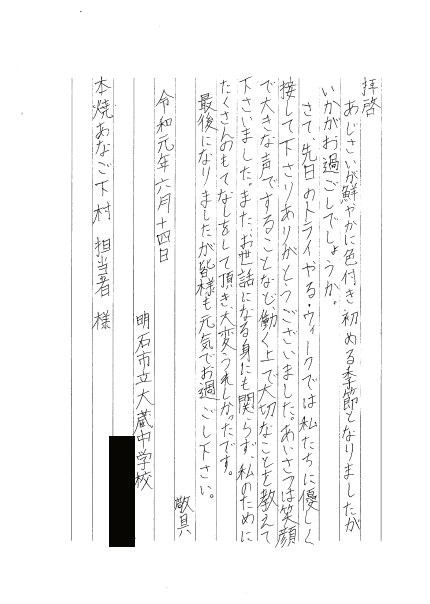 拝啓
あじさいが鮮やかに色付き初める季節となりましたが
いかがお過ごしでしょうか。
さて、先日のトライやる・ウィークでは私たちに優しく
接して下さりありがとうございました。あいさつは笑顔
で大きな声ですることなど働く上で大切なことを教えて
下さいました。また、お世話になる身にも関らず、私のために
たくさんのもてなしをして頂き、大変うれしかったです。
最後になりましたが皆様も元気でお過ごし下さい。
敬具
令和元年六月十四日
明石市立大蔵中学校
本焼あなご下村 担当者 様